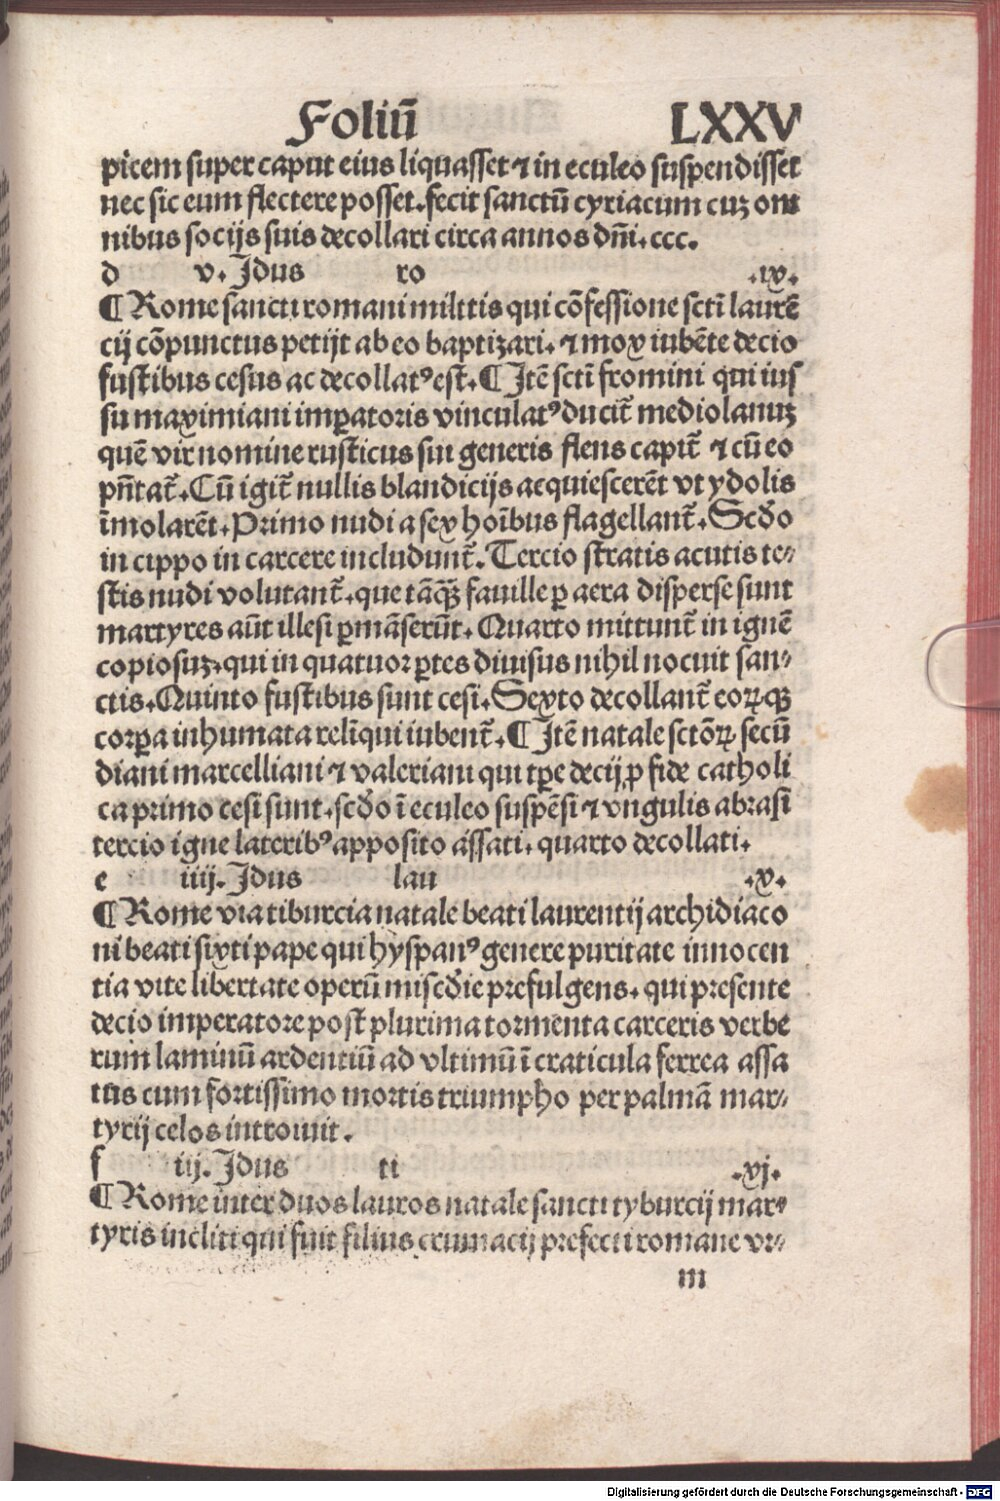 Foliū LXXV
picem super caput eius liquasset ⁊ in eculeo suspendisset
nec sic eum flectere posset. fecit sanctū cyriacum cuꝫ om
nibus socijs suis decollari circa annos dn̄i. ccc.
d v. Idus ro .ix.
¶ Rome sancti romani militis qui cōfessione scti laurē
cij cōpunctus petijt ab eo baptizari. ⁊ mox iubēte decio
fustibus cesus ac decollatꝰ est. ¶ Itē scti fromini qui ius
su maximiani imꝑatoris vinculatꝰ ducit̄ mediolanuꝫ
quē vir nomine rusticus sui generis flens capit̄ ⁊ cū eo
pn̄tat̄. Cū igit̄ nullis blandicijs acquiescerēt vt ydolis
īmolarēt. Primo nudi a sex hoībus flagellant̄. Scd̄o
in cippo in carcere includunt̄. Tercio stratis acutis te⸗
stis nudi volutant̄. que tāqꝫ̄ fauille ꝑ aera disperse sunt
martyres aūt illesi ꝑmāserūt. Quarto mittunt̄ in ignē
copiosuꝫ. qui in quatuor ꝑtes diuisus nihil nocuit san⸗
ctis. Quinto fustibus sunt cesi. Sexto decollant̄ eoꝝqꝫ
corꝑa inhumata relīqui iubent̄. ¶ Itē natale sctōꝝ secū
diani marcelliani ⁊ valeriani qui tꝑe decij ꝓ fide catholi
ca primo cesi sunt. scd̄o ī eculeo suspēsi ⁊ vngulis abrasi
tercio igne lateribꝰ apposito assati. quarto decollati.
e iiij. Idus lau .x.
¶ Rome via tiburcia natale beati laurentij archidiaco
ni beati sixti pape qui hyspanꝰ genere puritate innocen
tia vite libertate operū miscd̄ie prefulgens. qui presente
decio imperatore post plurima tormenta carceris verbe
rum laminū ardentiū ad vltimū ī craticula ferrea assa
tus cum fortissimo mortis triumpho per palmā mar⸗
tyrij celos introuit.
f iij. Idus ti .xj.
¶ Rome inter duos lauros natale sancti tyburcij mar⸗
tyris incliti qui fuit filius crumacij prefecti romane vr⸗
m
Digitalisierung gefördert durch die Deutsche Forschungsgemeinschaft - DFG